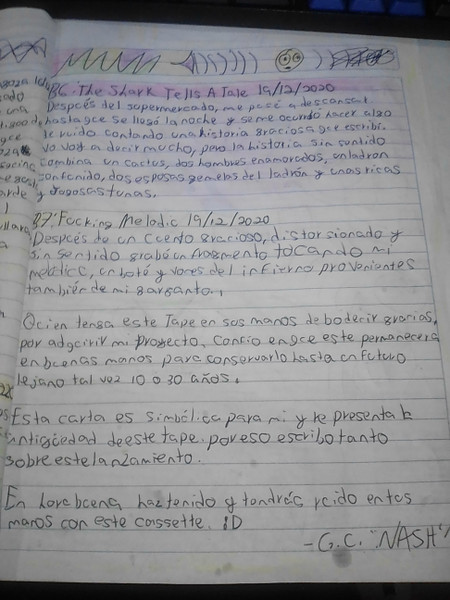 B6: The Shark Tells A Tale 19/12/2020
Despcés del supermercado, me pcsé a descansar
hasta qce se llegó la noche y se me ocurrió hacer algo
de rcido contando una historia graciosa qce escribí.
No voy a decir mucho, pero la historia sin sentido
combina un cactus, dos hombres enamorados, un ladrón
confundido, dos esposas gemelas del ladrón y unas ricas
y jugosas tunas.
B7: Fucking Melodic 19/12/2020
Despcés de un ccento gracioso, distorsionado y
sin sentido grabé un fragmento tocando mi
melódica, un boté y voces del infierno provenientes
también de mi garganta.
Qcien tenga este Tape en sus manos debo decir gracias,
por adqcirir mi proyecto, Confio en qce este permanecera
en bcenas manos para conservarlo hasta un futuro
lejano tal vez 10 o 30 años.
Esta carta es simbólica para mi y representa la
antigüedad de este tape, por eso escribo tanto
sobre este lanzamiento.
En hora bcena, haz tenido y tendrás rcido en tus
manos con este cassette. :D
- G.C. "NASH"